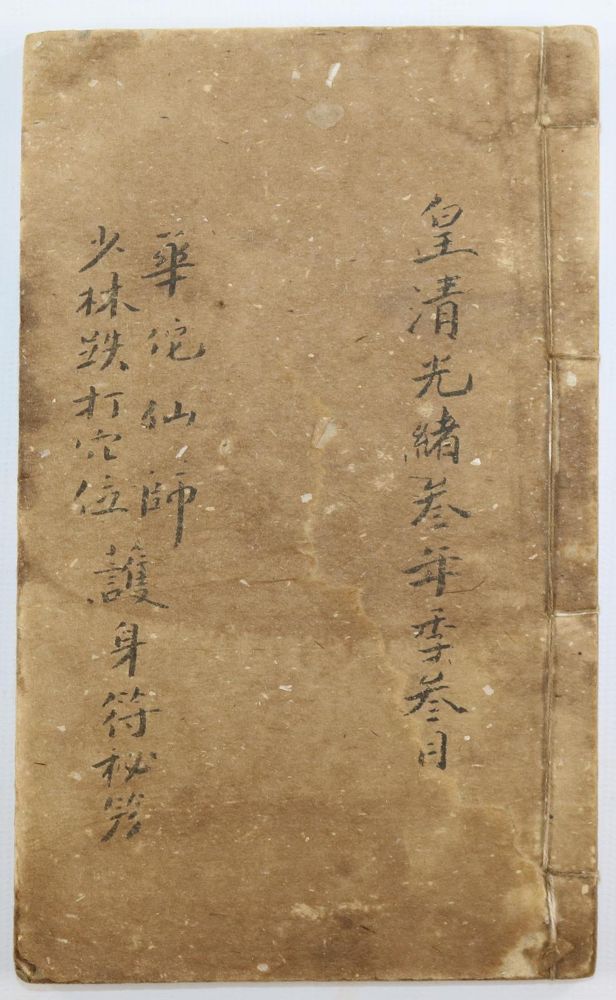 皇清光緒叁年季叁月
華佗仙師
少林跌打穴位
護身符秘